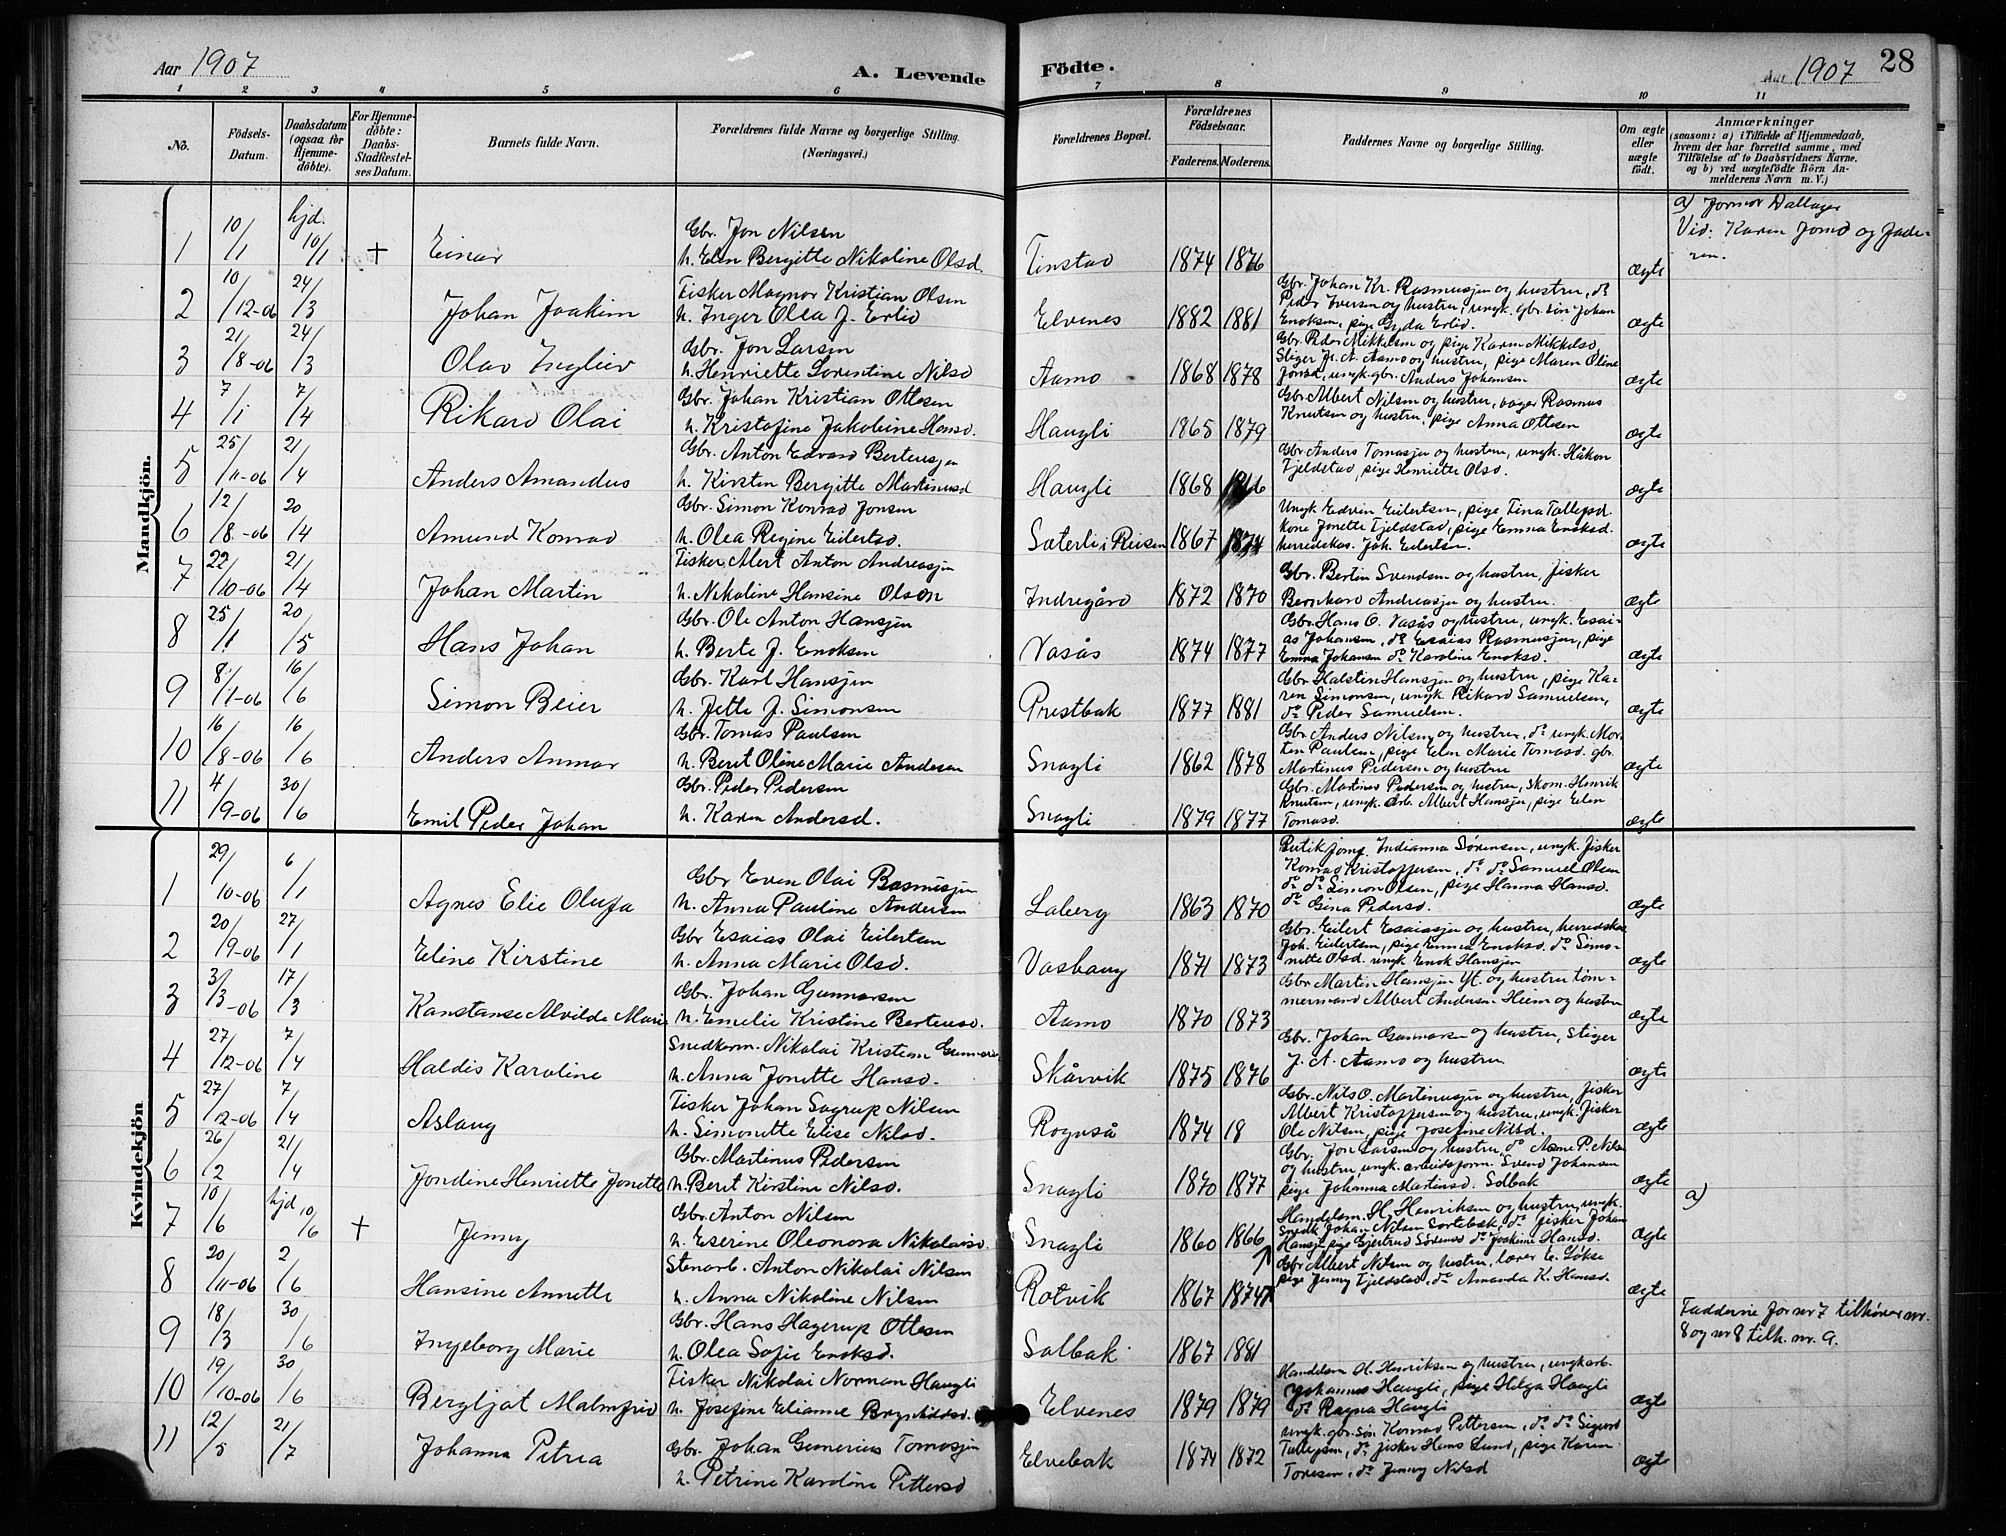 Aar 1907 A. Levende Födte. Aar 1907 28
1 2 3 4 5 6 7 8 9 10 11
No. Födsels-Datum. Daabsdatum (ogsaa for Hjemmedöbte). For Hjemmedöbte: Daabs-Stadfæstelses Datum. Barnets fulde Navn. Forældrenes fulde Navne og borgerlige Stilling. (Næringsvei.) Forældrenes Bopæl. Forældrenes Födselsaar. Faderens. Moderens. Faddernes Navne og borgerlige Stilling. Om ægte eller uægte födt. Anmærkninger (saasom: a) i Tilfælde af Hjemmedaab, hvem der har forrettet samme, med Tilföielse af to Daabsvidners Navne. og b) ved uægtefödte Börn Anmelderens Navn m. V.)
Mandkjön.
1 10/1 hjd. 10/1 + Einar Gbr. Jon Nilsen
h. Elen Bergitte Nikoline Olsd. Tinstad 1874 1876 ægte a) Jormor Dallager
Vid: Karen Jomd og Fade-
ren.
2 10/12-06 24/3 Johan Joakim Fisker Magnor Kristian Olsen
h. Inger Olea J. Erlid Elvenes 1882 1881 Gbr. Johan Kr. Rasmussen og hustru, do
Peder Iversen og hustru, ungk. gbr. søn Johan
Enoksen, pige Gyda Erlid. ægte
3 21/8-06 24/3 Olav Ingliev Gbr. Jon Larsen
h. Henriette Lorentine Nilsd Aamo 1868 1878 Gbr. Peder Mikkelsen og pige Karen Mikkelsd,
Stiger J. A. Aamo og hustru, pige Maren Oline
Jonsd, ungk. gbr. Anders Johansen ægte
4 7/1 7/4 Rikard Olai Gbr. Johan Kristian Ottesen
h. Kristofine Jakobine Hansd. Haugli 1865 1879 Gbr. Albert Nilsen og hustru, bager Rasmus
Knutsen og hustru, pige Anna Ottesen ægte
5 25/11-06 21/4 Anders Amandus Gbr. Anton Edvard Berteussen
h. Kirsten Bergitte Martinusd Haugli 1868 Gbr. Anders Tomassen og hustru, ungk. Håkon
Fjeldstad, pige Henriette Olsd. ægte
6 12/8-06 20/4 Amund Konrad Gbr. Simon Konrad Jonsen
h. Olea Regine Eilertsd. Sæterli i Reisen 1867 1874 Ungk Edvin Eilertsen, pige Tina Tollefsd.
kone Jonette Fjeldstad, pige Emma Enoksd.
herredskas. Joh. Eilertsen. ægte
7 22/10-06 21/4 Johan Martin Fisker Alert Anton Andreassen
h. Nikoline Hansine Olsen Indregård 1872 1870 Gbr. Bertin Svendsen og hustru, fisker
Bernhard Andreassen og hustru. ægte
8 25/1 20/5 Hans Johan Gbr. Ole Anton Hanssen
h. Berte J. Enoksen Vasås 1874 1877 Gbr. Hans O. Vasås og hustru, ungk. Esai-
as Johansen, do Esaias Rasmussen, pige
Emma Johansen do Karoline Enoksd. ægte
9 8/11-06 16/6 Simon Beier Gbr. Karl Hanssen
h. Jette J. Simonsen Prestbak 1877 1881 Gbr Halstein Hanssen og hustru, pige Ka-
ren Simonsen, ungk. Rikard Samuelsen,
do Peder Samuelsen. ægte
10 16/8-06 16/6 Anders Anmar Gbr. Tomas Paulsen
h. Berit Oline Marie Andersen Snagli 1862 1878 Gbr. Anders Nilsen og hustru, do ungk. Mor-
ten Paulsen, pige Elen Marie Tomasd. gbr.
Martinus Pedersen og hustru ægte
11 4/9-06 30/6 Emil Peder Johan Gbr. Peder Pedersen
h. Karen Andersd. Snagli 1879 1877 Gbr. Martinus Pedersen og hustru, skom. Henrik
Knutsen, ungk. arb. Albert Hanssen, pige Elen
Tomasd. ægte
Kvindekjön
1 29/10-06 6/1 Agnes Elie Olufa Gbr Even Olai Rasmussen
h. Anna Pauline Andersen Laberg 1863 1870 Butikjomf. Indianna Sørensen, ungk. fisker
Konrad Kristoffersen, do do Samuel Olsen
do do Simon Olsen, pige Hanna Hansd.
do Gina Pedersd. ægte
2 20/9-06 27/1 Eline Kirstine Gbr Esaias Olai Eilertsen
h. Anna Marie Olsd. Vashaug 1871 1873 Gbr. Eilert Esaiassen og hustru, herredskas
Joh. Eilertsen, pige Emma Enoksd. do Simo-
nette Olsd. ungk. Enok Hanssen ægte
3 3/3-06 17/3 Kanstanse Alvilde Marie Gbr. Johan Gunnarsen
h. Emelie Kristine Berteusd. Aamo 1870 1873 Gbr Martin Hanssen Yt. og hustru tøm-
mermand Albert Andersen Heim og hustru ægte
4 27/12-06 7/4 Haldis Karoline Snedkerm. Nikolai Kristian Gunnarsen
h. Anna Jonette Hansd. Skårvik 1875 1876 Gbr. Johan Gunnarsen og hustru, Stiger
J. A. Aamo og hustru ægte
5 27/12-06 7/4 Aslaug Fisker Johan Sagrup Nilsen
h. Simonette Elise Nilsd. Rognså 1874 18 Gbr. Nils O. Martinussen og hustru, fisker
Albert Kristoffersen og hustru, ungk. fisker
Ole Nilsen, pige Josefine Nilsd. ægte
6 26/2 21/4 Jondine Henriette Jonette Gbr. Martinus Pedersen
h. Berit Kirstine Nilsd. Snagli 1870 1877 Gbr. Jon Larsen og hustru, do Arne P. Nilsen
og hustru, ungk. arbeidsform. Svend Johansen
pige Johanna Martinsd. Solbak ægte
7 10/6 hjd 10/6 + Jenny Gbr. Anton Nilsen
h. Eserine Oleonora Nikolaisd. Snagli 1860 1866 Handelsm. H. Henriksen og hustru, ungk.
Snedk Johan Nilsen Sortebak, do fisker Johan
Hanss. pige Gjertrud Sørensd do Joakime Hansd. ægte a)
8 20/11-06 2/6 Hansine Annette Stenarb. Anton Nikolai Nilsen
h. Anna Nikoline Nilsen Rotvik 1867 1874 Gbr Albert Nilsen og hustru, lærer E. Løkse
pige Jenny Fjeldstad, do Amanda K. Hansd. ægte
9 18/3 30/6 Ingeborg Marie Gbr. Hans Hagerup Ottesen
h. Olea Sofie Enoksd. Solbak 1867 1881 Fadderne for nr 7 tilhører nr.
8 og nr 8 tilh. nr. 9.
10 19/10-06 30/6 Bergljot Malmfrid Fisker Nikolai Norman Haugli
h. Josefine Elianne Brynhildsd. Elvenes 1879 1879 Handelsm H. Henriksen og hustru, ungk arb.
Johannes Haugli, pige Helga Haugli
do Ragna Haugli ægte
11 12/5 21/7 Johanna Petrea Gbr. Johan Gunerius Tomassen
h. Petrine Karoline Pettersd Elvebak 1874 1872 ungk. gbr. søn Konrad Pettersen, do do Sigurd
Tollefsen, do fisker Hans Lund, pige Karen
Toresen, do Jenny Nilsd ægte